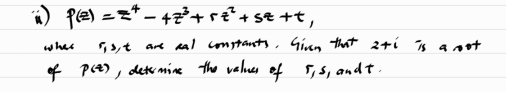 ii) P(z) = z⁴ - 4z³ + rz² + sz + t,
where r,s,t are real constants. Given that 2+i is a root
of P(z), determine the values of r, s, and t.